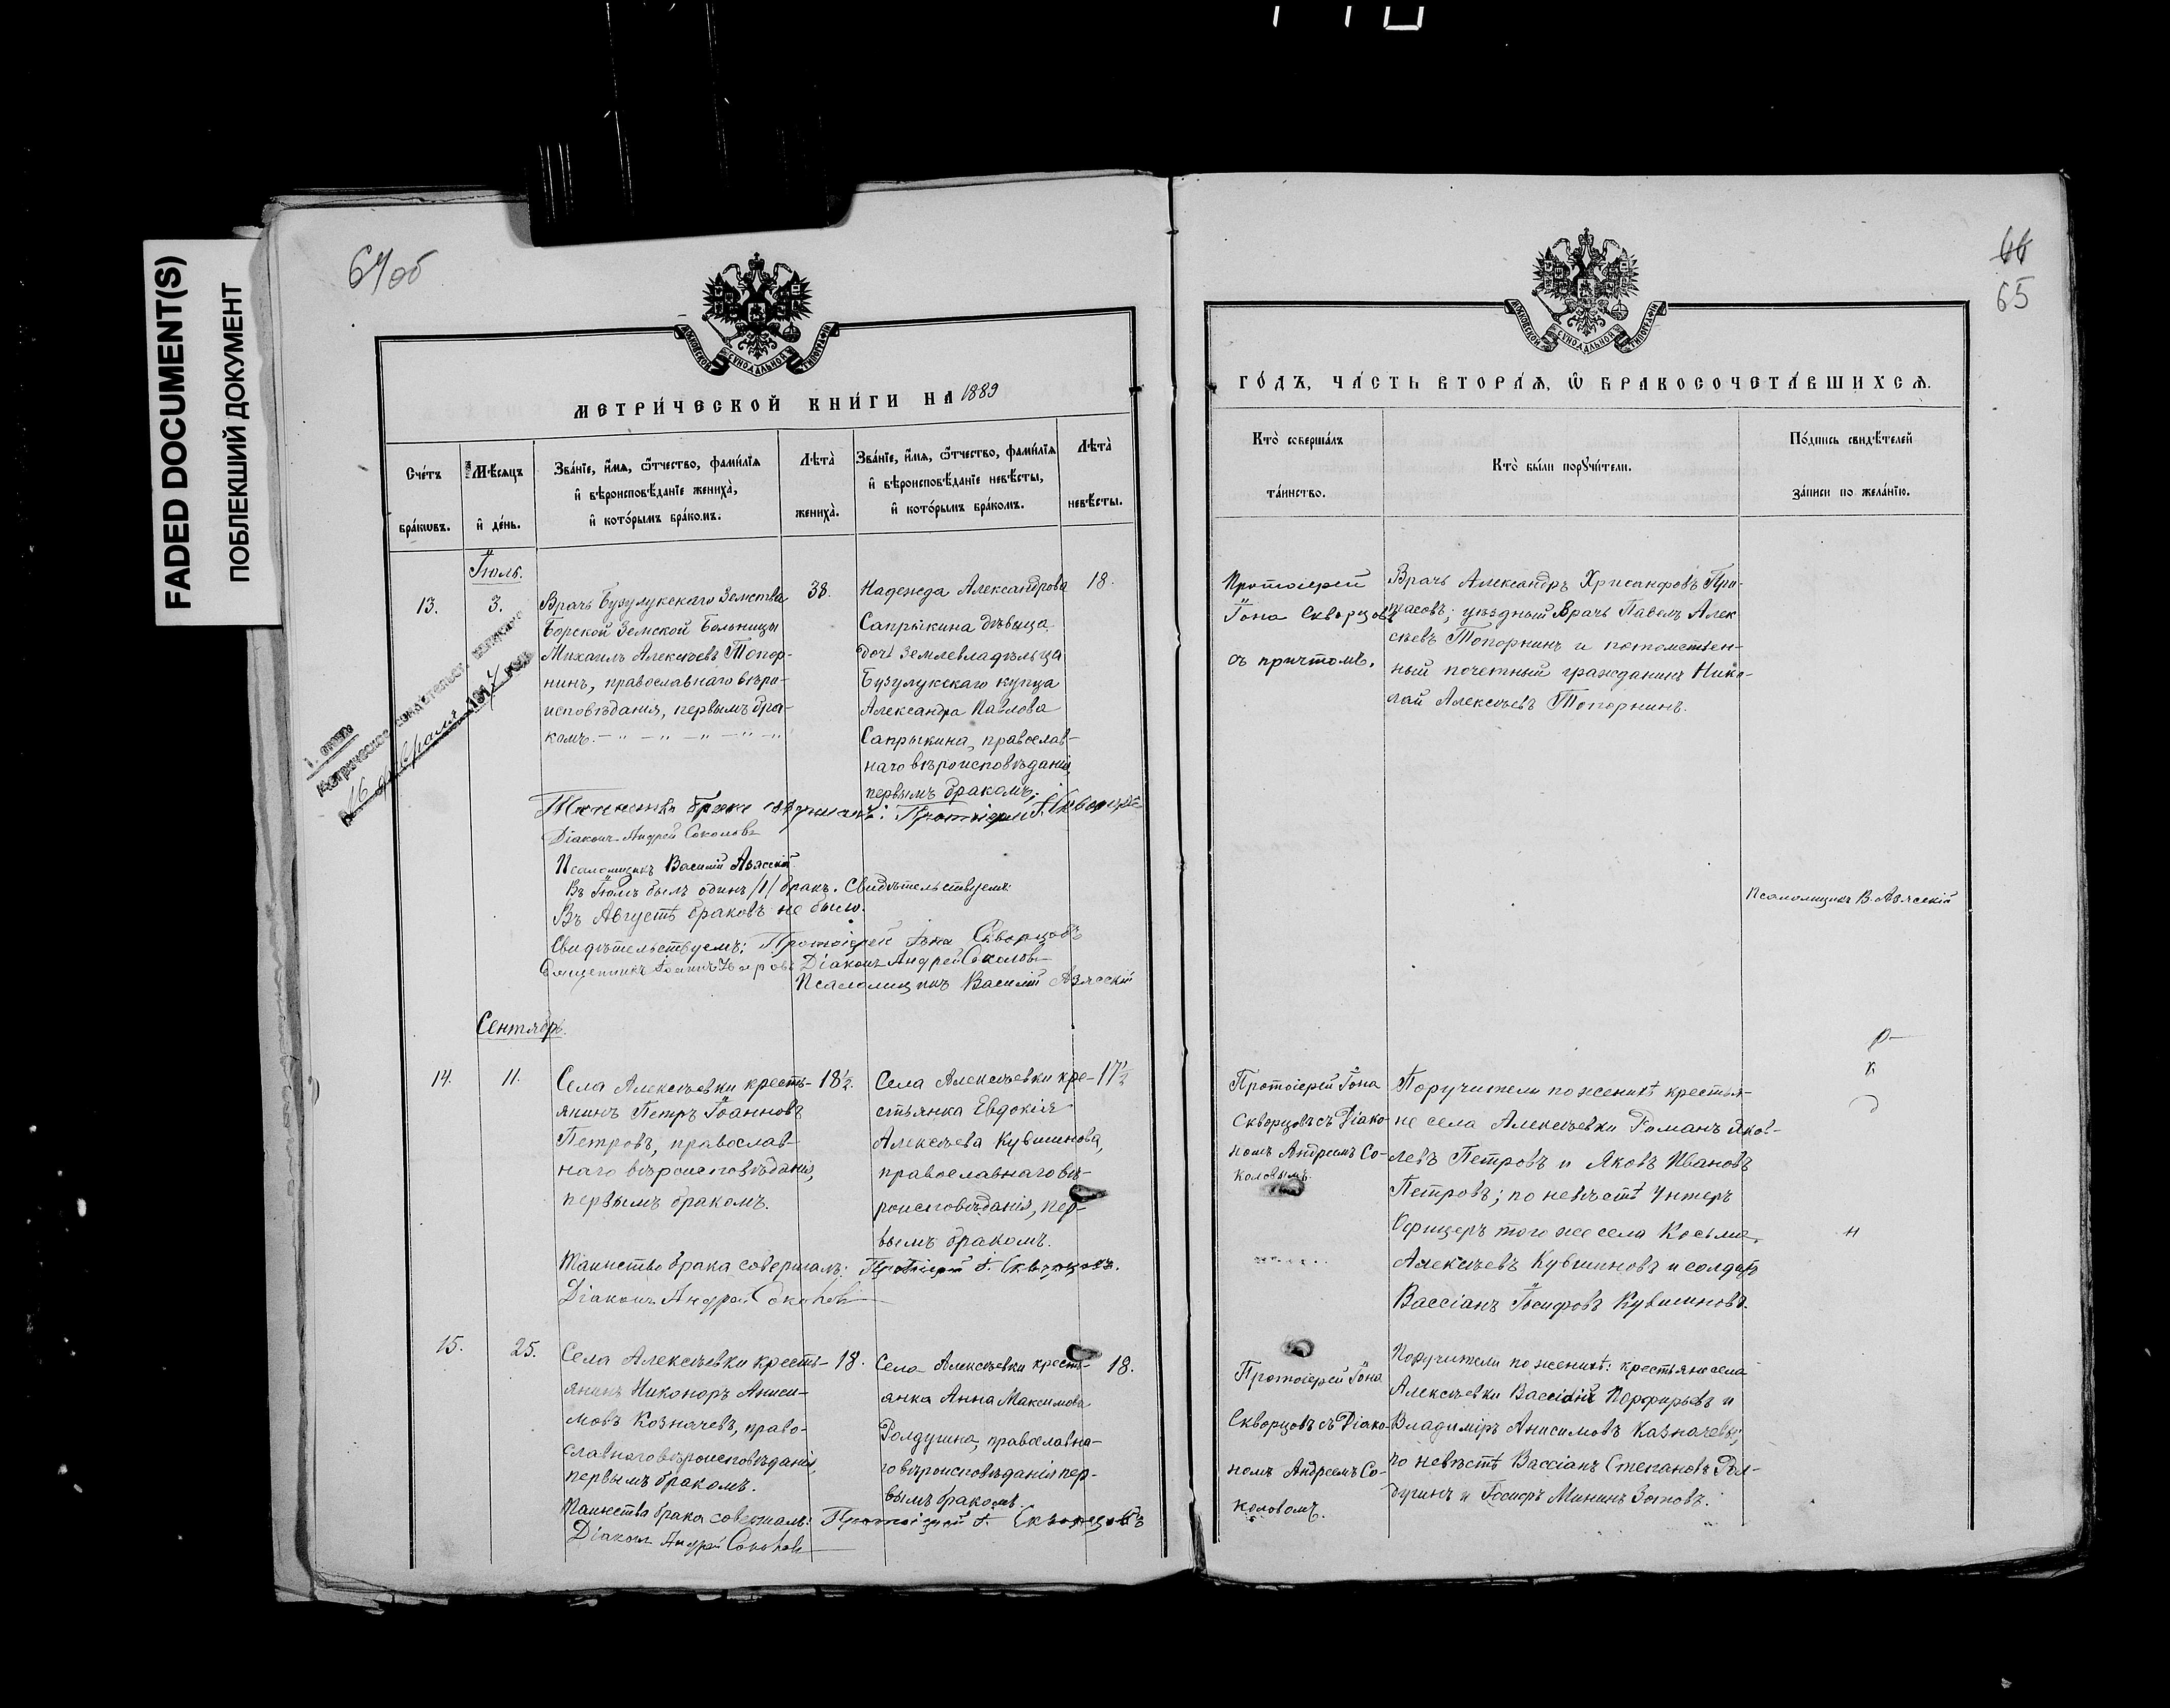 FADED DOCUMENT(S)
ПОБЛЕКШИЙ ДОКУМЕНТ
64об
66
65
МОСКОВСКОЙ СѴНОДАЛЬНОЙ ТИПОГРАФІИ
МЕТРИ́ЧЕСКОЙ КНИ́ГИ НА 1889
Сче́тъ бра́кѡвъ.
Мѣ́сяцъ и҆ де́нь.
Зва́нїе, и҆́мѧ, ѻ҆́тчество, фамѝлїѧ
и҆ вѣроисповѣ́данїе жениха̀,
и҆ кото́рымъ бра́комъ.
Лѣта̀ жениха̀.
Зва́нїе, и҆́мѧ, ѻ҆́тчество, фами́лїѧ
и҆ вѣроисповѣ́данїе невѣ́сты,
и҆ кото́рымъ бра́комъ.
Лѣта̀ невѣ́сты.
Іюль.
13.
3.
Врачъ Бузулукскаго Земства
Борской Земской Больницы
Михаилъ Алексѣевъ Топор-
нинъ, православнаго вѣро-
исповѣданія, первымъ бра-
комъ.
38.
Надежда Александрова
Сапрыкина дѣвица
дочь землевладѣльца
Бузулукскаго купца
Александра Павлова
Сапрыкина, православ-
наго вѣроисповѣданія,
первымъ бракомъ.
18.
Таинство брака совершалъ: Протоіерей І. Скворцовъ
Діаконъ Андрей Соколовъ
Псаломщикъ Василій Азясскій
Въ Іюлѣ былъ одинъ /1/ бракъ. Свидѣтельствуемъ:
Въ Августѣ браковъ не было.
Свидѣтельствуемъ: Протоіерей Іона Скворцовъ
Священникъ Діаконъ Андрей Соколовъ
Псаломщикъ Василій Азясскій
Сентябрь.
14.
11.
Села Алексѣевки кресть-
янинъ Петръ Іоанновъ
Петровъ, православ-
наго вѣроисповѣданія,
первымъ бракомъ.
18½.
Села Алексѣевки кре-
стьянка Евдокія
Алексѣева Кувшинова,
православнаго вѣ-
роисповѣданія, пер-
вымъ бракомъ.
17½
Таинство брака совершалъ: Протоіерей І. Скворцовъ.
Діаконъ Андрей Соколовъ
15.
25.
Села Алексѣевки кресть-
янинъ Никоноръ Аниси-
мовъ Козначевъ, право-
славнаго вѣроисповѣданія,
первымъ бракомъ.
18.
Села Алексѣевки кресть-
янка Анна Максимова
Долдугина, православна-
го вѣроисповѣданія пер-
вымъ бракомъ.
18.
Таинство брака совершалъ: Протоіерей І. Скворцовъ
Діаконъ Андрей Соколовъ
МОСКОВСКОЙ СѴНОДАЛЬНОЙ ТИПОГРАФІИ
ГО́ДЪ, ЧА́СТЬ ВТОРА́Ѧ, Ѽ БРАКОСОЧЕТА́ВШИХСѦ.
Кто̀ соверша́лъ та́инство.
Кто̀ бы́ли порꙋчи́тели.
По́дпись свидѣ́телей за́писи по жела́нїю.
Протоіерей
Іона Скворцовъ
съ причтомъ.
Врачъ Александръ Хрисанфовъ При-
пасовъ; уѣздный Врачъ Павелъ Алек
сѣевъ Топорнинъ и потомствен-
ный почетный гражданинъ Нико-
лай Алексѣевъ Топорнинъ.
Псаломщикъ В. Азясскій
Протоіерей Іона
Скворцовъ съ Діако-
номъ Андреемъ Со-
коловымъ.
Поручители по женихѣ крестья-
не села Алексѣевки Романъ Яков-
левъ Петровъ и Яковъ Ивановъ
Петровъ; по невѣстѣ Унтеръ
Офицеръ того же села Косьма
Алексѣевъ Кувшиновъ и солдатъ
Вассіанъ Іосифовъ Кувшиновъ.
Протоіерей Іона
Скворцовъ съ Діако-
номъ Андреемъ Со-
коловомъ.
Поручители по женихѣ: крестьяне села
Алексѣевки Вассіанъ Порфирьевъ и
Владиміръ Анисимовъ Казначевы;
по невѣстѣ Вассіанъ Степановъ Дол-
дугинъ и Іосифъ Мининъ Зотовъ.